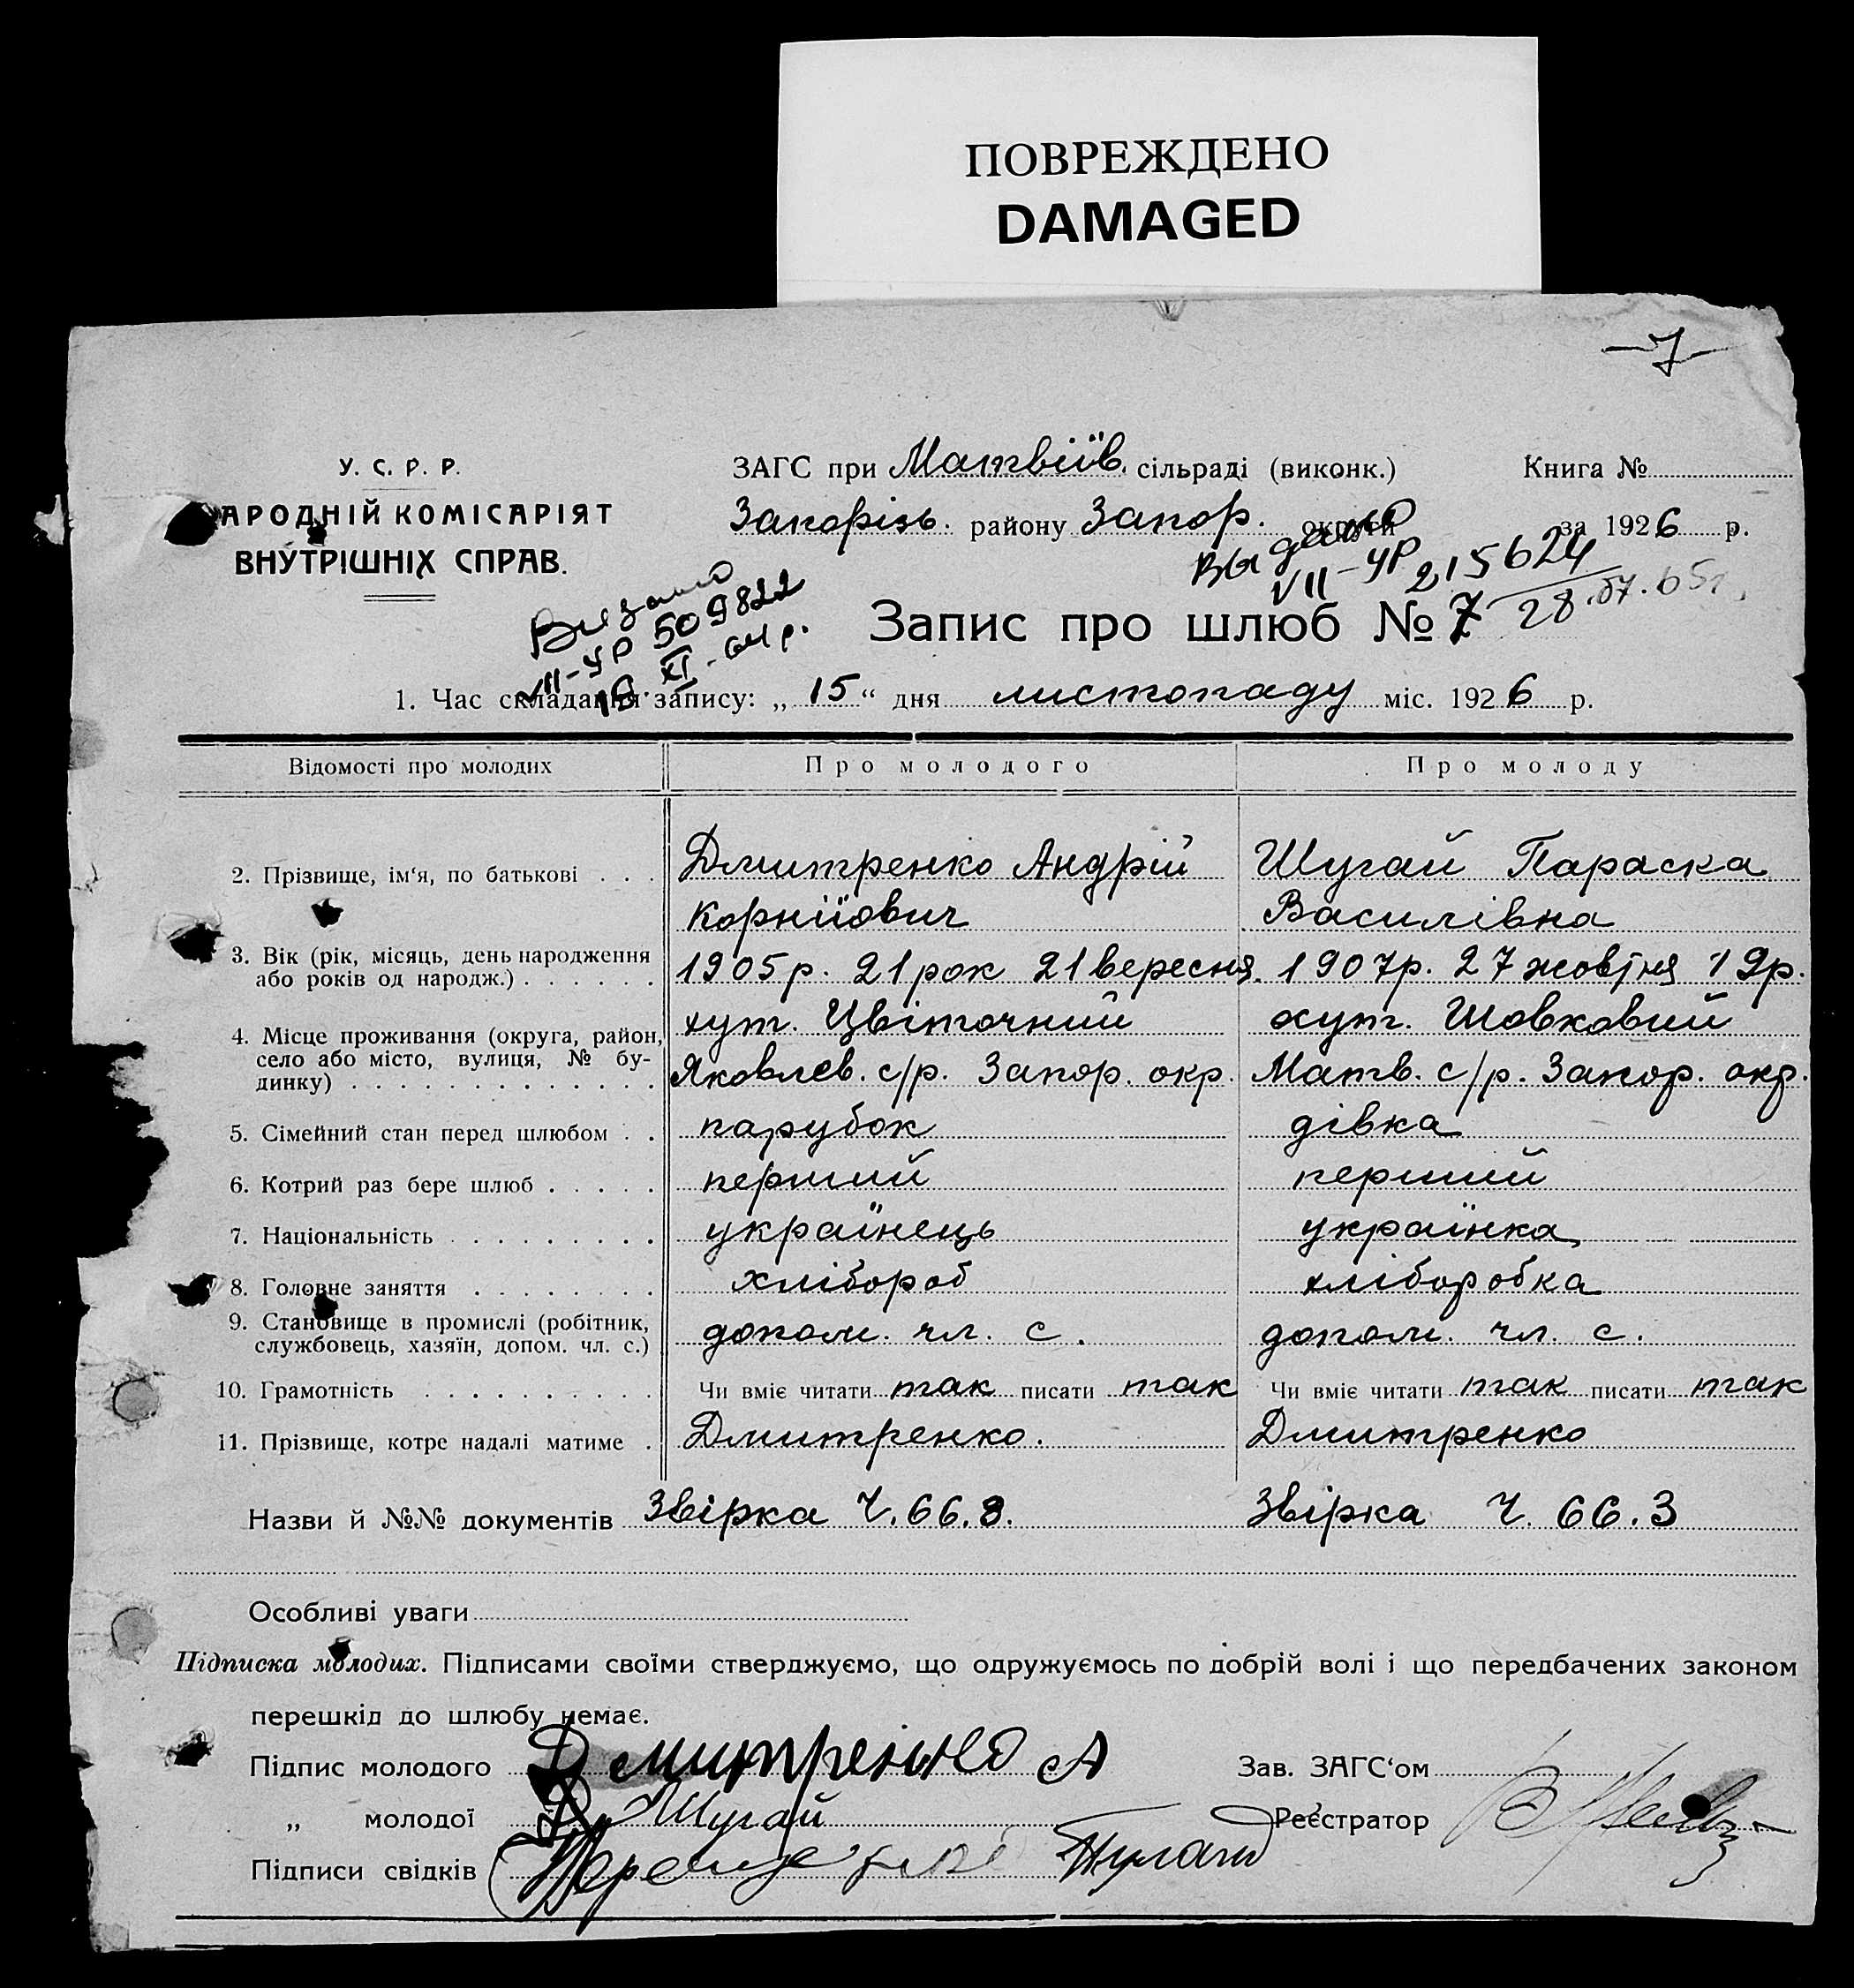 ПОВРЕЖДЕНО
DAMAGED
7
У. С. Р. Р.
АРОДНІЙ КОМІСАРІЯТ
ВНУТРІШНІХ СПРАВ.
ЗАГС при Матвіїв. сільраді (виконк.)
Книга №
Запорізь. району Запор. округи
за 1926 р.
Выдано
VII-УР 215624
28.07.65г.
Видано
VII-УР 509822
XI-64 р.
Запис про шлюб № 7
1. Час складання запису: „15“ дня листопаду міс. 1926 р.
Відомості про молодих Про молодого Про молоду
2. Прізвище, ім‘я, по батькові . . . Дмитренко Андрій Шугай Параска
Корнійович Василівна
3. Вік (рік, місяць, день народження
або років од народж.) . . . . . . 1905р. 21 рок 21 вересня. 1907р. 27 жовтня 19р.
4. Місце проживання (округа, район, хут. Цвіточний хут. Шовковий
село або місто, вулиця, № бу-
динку) . . . . . . . . . . . . . Яковлев. с/р. Запор. окр. Матв. с/р. Запор. окр.
5. Сімейний стан перед шлюбом . . парубок дівка
6. Котрий раз бере шлюб . . . . . перший перший
7. Національність . . . . . . . . . українець українка
8. Головне заняття . . . . . . . . хлібороб хліборобка
9. Становище в промислі (робітник,
службовець, хазяїн, допом. чл. с.) допом. чл. с. допом. чл. с.
10. Грамотність . . . . . . . . . . Чи вміє читати так писати так Чи вміє читати так писати так
11. Прізвище, котре надалі матиме . Дмитренко. Дмитренко
Назви й №№ документів Звірка Ч. 66.3. Звірка Ч. 66.3
Особливі уваги
Підписка молодих. Підписами своїми стверджуємо, що одружуємось по добрій волі і що передбачених законом
перешкід до шлюбу немає.
Підпис молодого Дмитренко А Зав. ЗАГС‘ом
„ молодої Шугай Реєстратор
Підписи свідків